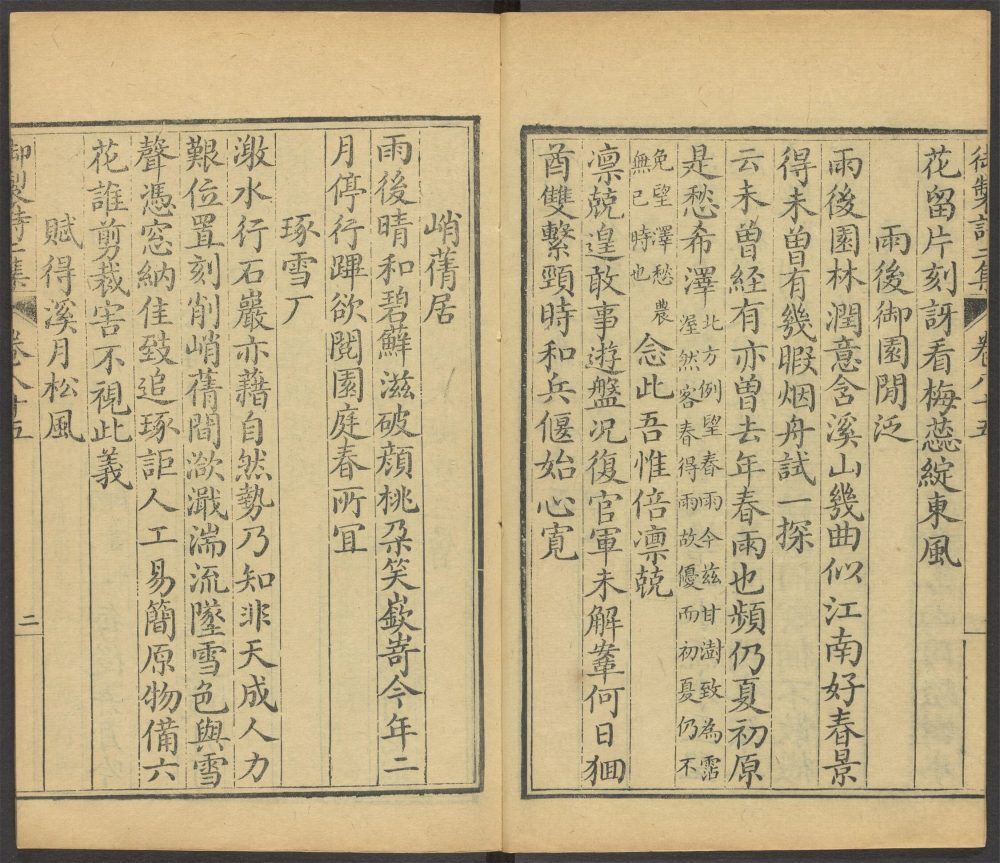 御製詩二集 卷八十五
花留片刻訝看梅蕊綻東風
雨後御園閒泛
雨後園林潤意含溪山幾曲似江南好春景
得未曾有幾暇烟舟試一探
云未曾經有亦曾去年春雨也頻仍夏初原
是愁希澤北方例望春雨今兹甘澍致為霑
渥然客春得雨故優而初夏仍不
免望澤愁農
無已時也念此吾惟倍凛兢
凛兢遑敢事遊盤况復官軍未解鞌何日狪
酋雙繫頸時和兵偃始心寛
峭蒨居
雨後晴和碧蘚滋破顔桃朶笑嶔嵜今年二
月停行蹕欲閲園庭春所宜
琢雪厂
潄水行石巖亦藉自然勢乃知非天成人力
艱位置刻削峭蒨間潊濈湍流墜雪色與雪
聲憑窓納佳致追琢詎人工易簡原物備六
花誰剪裁害不視此義
賦得溪月松風
御製詩二集 卷八十五 二